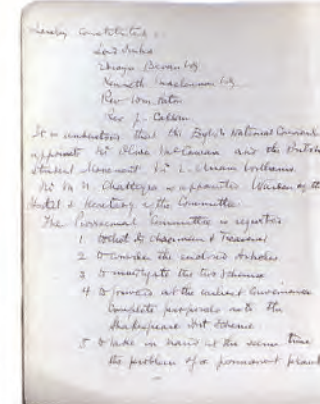 hereby constituted :
Lord Sinha
Edwyn Bevan Esq
Kenneth Maclennan Esq
Rev Wm. Paton
Rev J. Callan
It is understood that the English National Council
appoints Mr Oliver McCowan and the British
Student Movement Mr
Mr N. Chatterjea is appointed Warden of the
Hostel & Secretary of the Committee.
The Provisional Committee is requested
1 to elect a chairman & Treasurer
2 to consider the enclosed
3 to investigate the two schemes
4 to forward at the earliest convenience
complete proposals as to the
Shakespeare Hut Scheme
5 to take in hand at the same time
the problem of a permanent